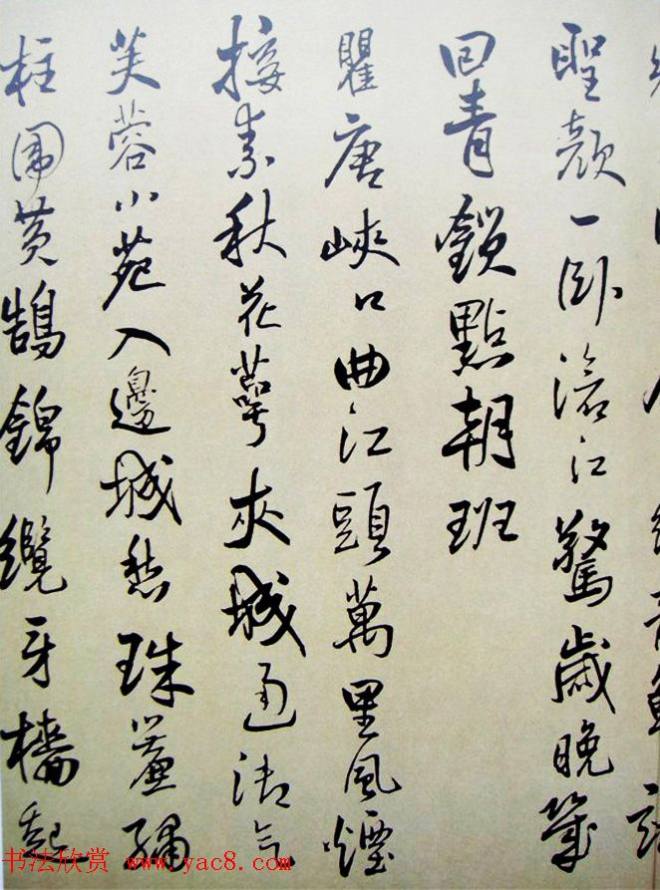 聖顔一卧滄江驚歲晚幾
回青鎖點朝班
瞿唐峽口曲江頭萬里風煙
接素秋花萼夾城通御氣
芙蓉小苑入邊城愁珠簾繡
柱圍黄鵠錦纜牙檣起
书法欣赏 www.yac8.com